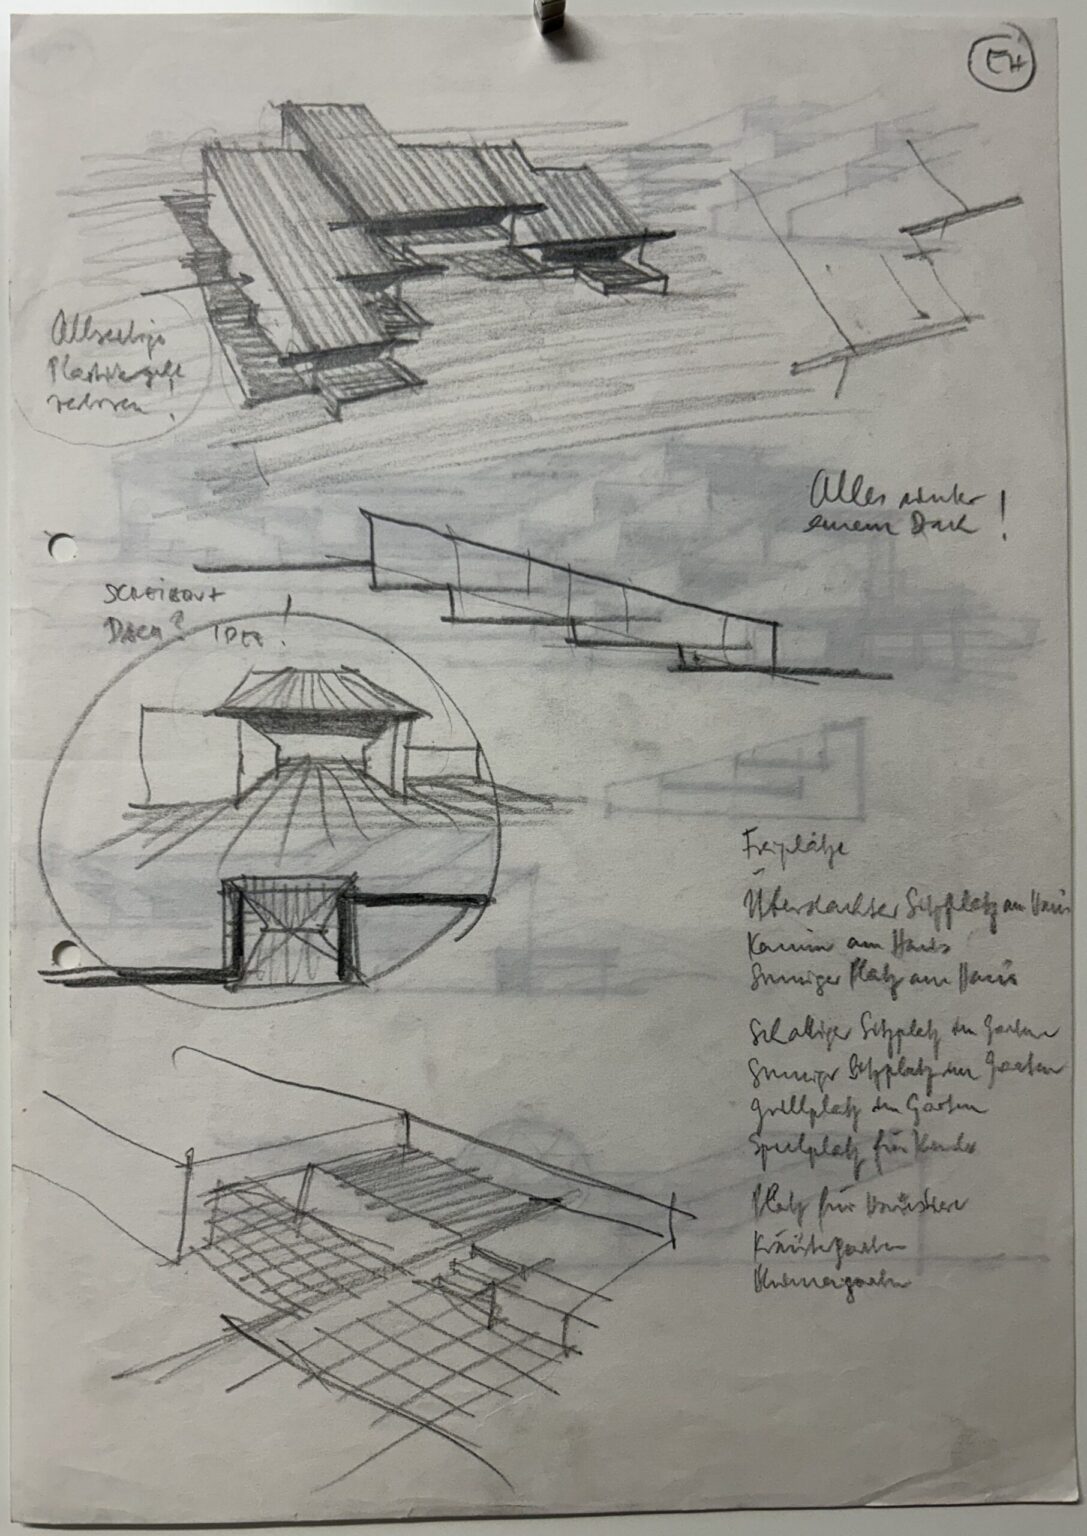 EH
Allseitige
verloren!
Alles unter
einem Dach!
Dach? IDEE!
Freiplätze
Überdachter Sitzplatz am Haus
Kamin am Haus
Sonniger Platz am Haus
Schattiger Sitzplatz im Garten
Sonniger Sitzplatz im Garten
Grillplatz im Garten
Spielplatz für Kinder
Platz für Haustiere
Kräutergarten
Blumengarten